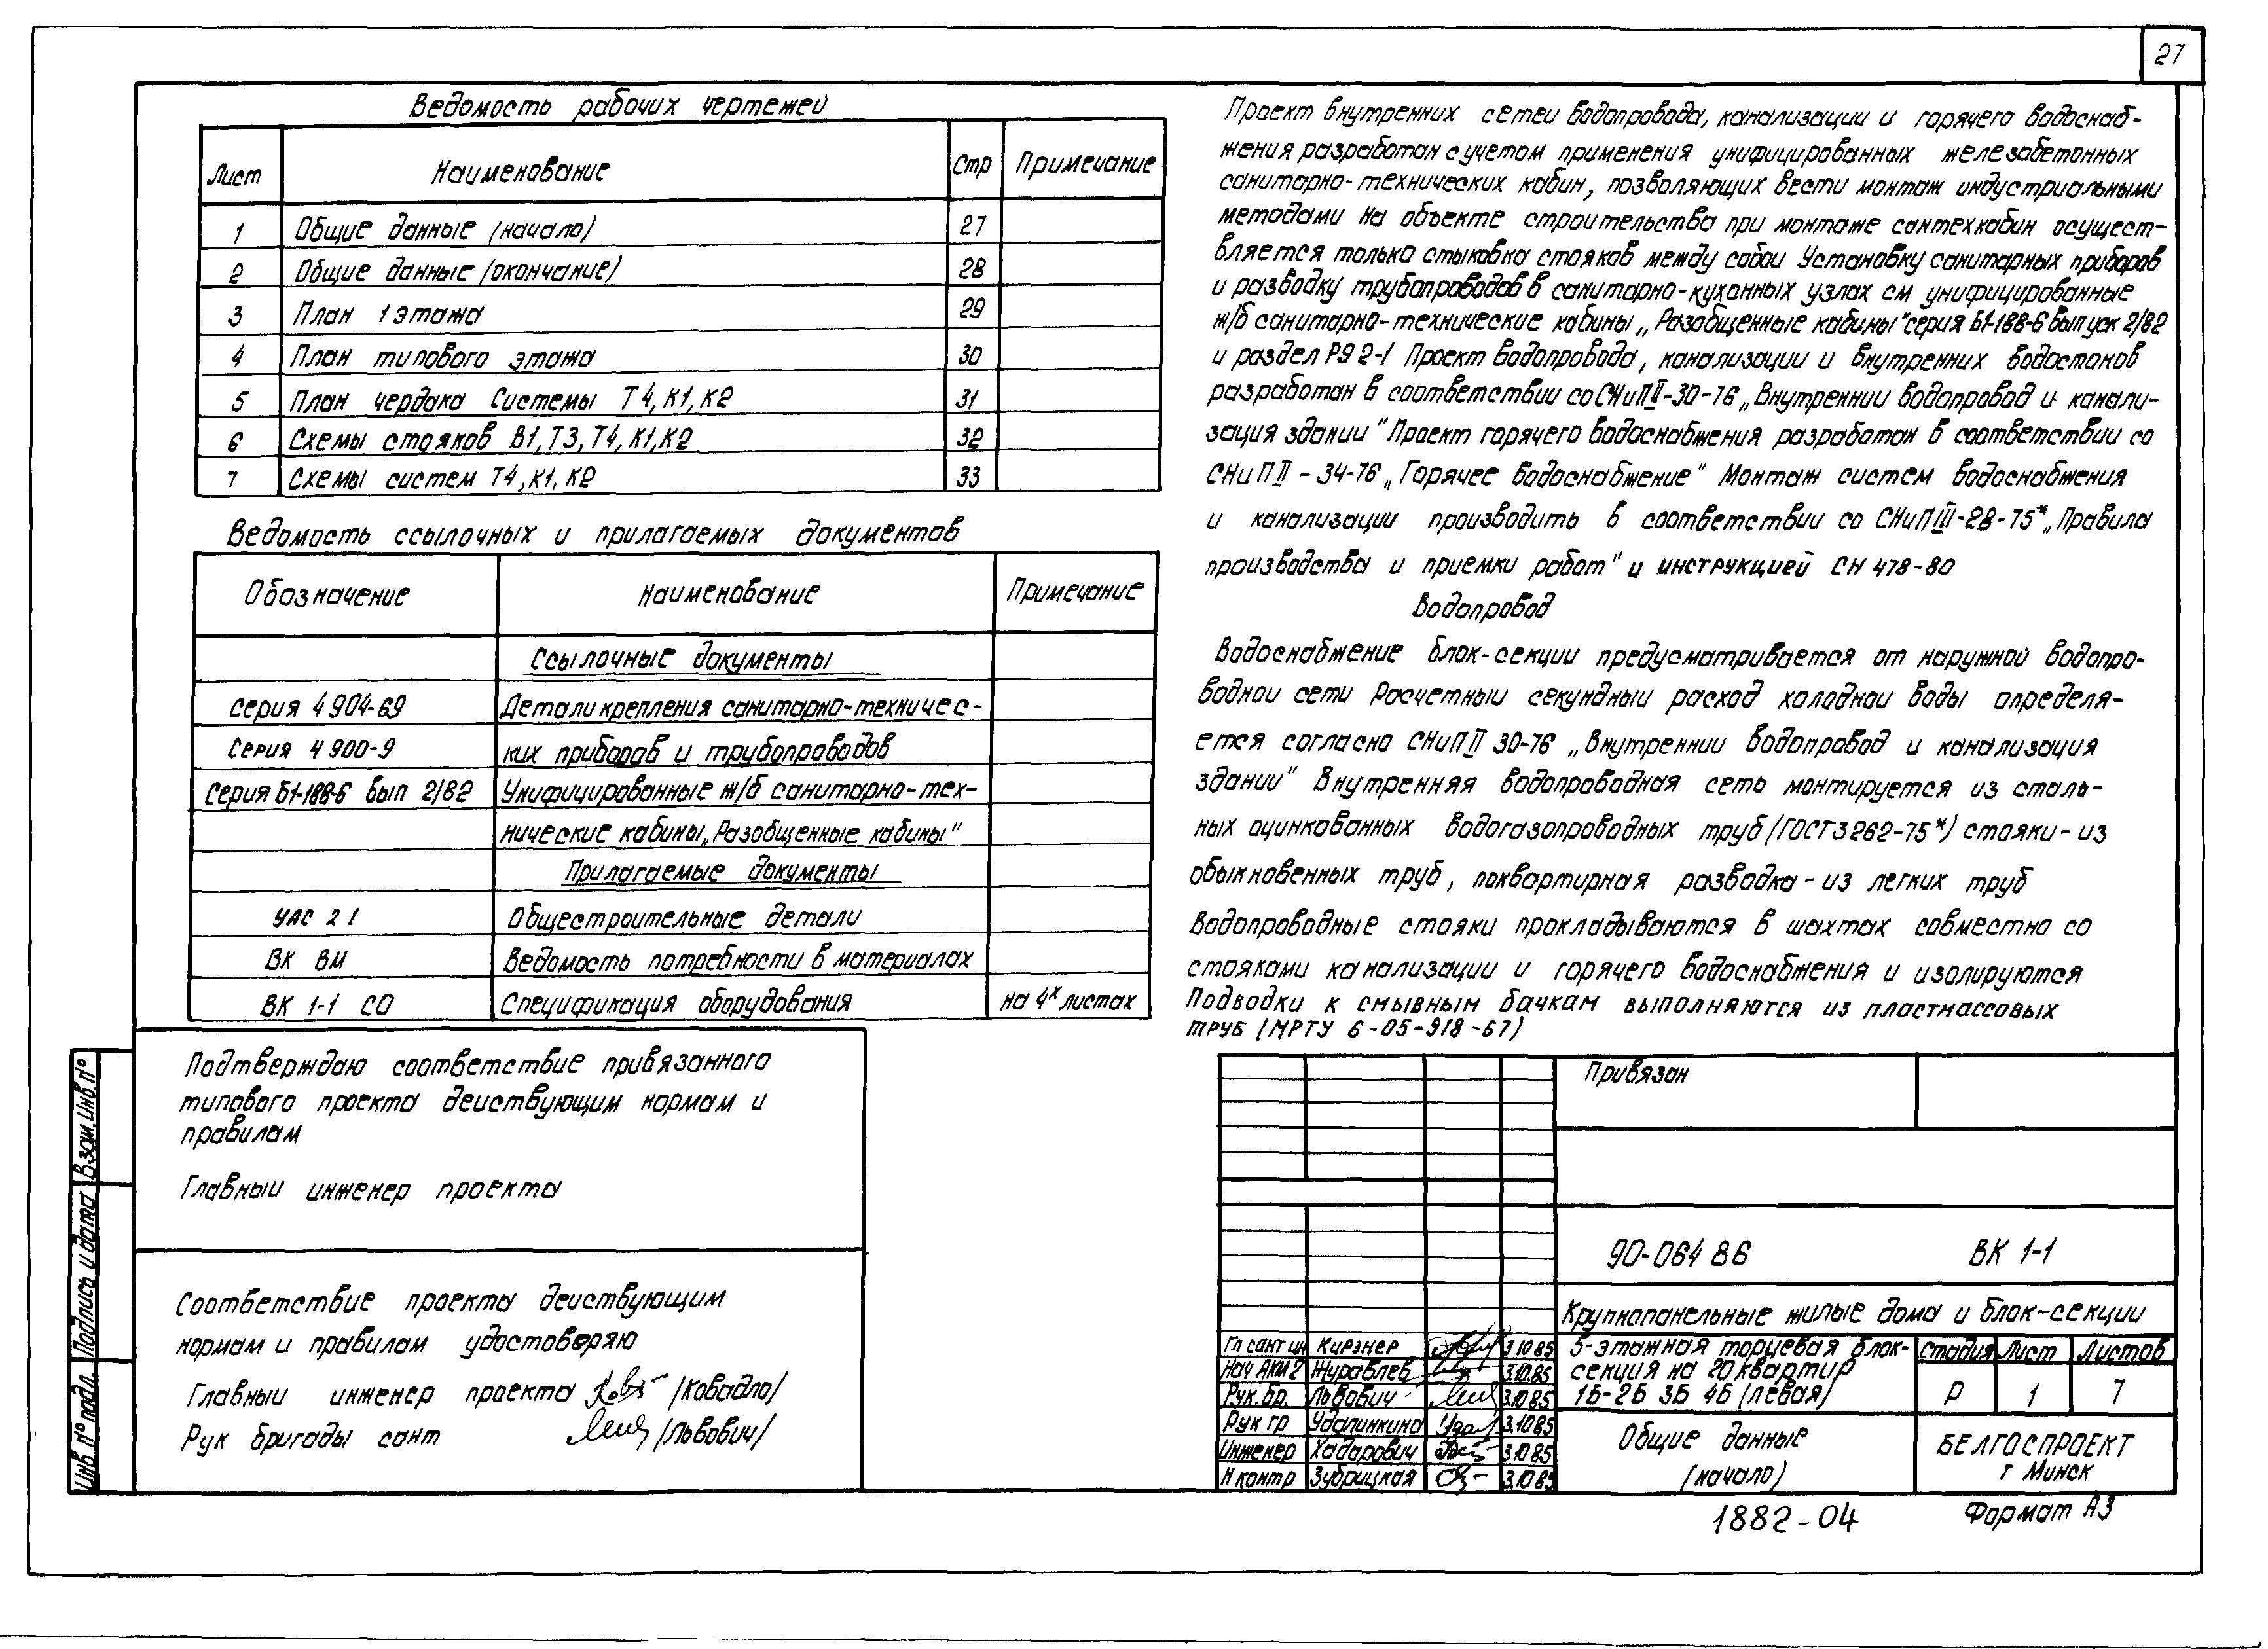 27
Ведомость рабочих чертежей
Лист Наименование Стр Примечание
1 Общие данные (начало) 27
2 Общие данные (окончание) 28
3 План 1 этажа 29
4 План типового этажа 30
5 План чердака Системы Т4, К1, К2 31
6 Схемы стояков В1, Т3, Т4, К1, К2 32
7 Схемы систем Т4, К1, К2 33
Ведомость ссылочных и прилагаемых документов
Обозначение Наименование Примечание
Ссылочные документы
Серия 4 904-69 Детали крепления санитарно-техничес-
Серия 4 900-9 ких приборов и трубопроводов
Серия Б1-188-6 вып 2/82 Унифицированные ж/б санитарно-тех-
нические кабины „Разобщенные кабины"
Прилагаемые документы
УАС 2 1 Общестроительные детали
ВК ВМ Ведомость потребности в материалах
ВК 1-1 СО Спецификация оборудования на 4х листах
Подтверждаю соответствие привязанного
типового проекта деиствующим нормам и
правилам
Главныи инженер проекта
Соответствие проекта деиствующим
нормам и правилам удостоверяю
Главныи инженер проекта /Ковадло/
Рук бригады сант /Львович/
Взам. Инв. №
Подпись и дата
Инв № подл.
Проект внутренних сетеи водопровода, канализации и горячего водоснаб-
жения разработан с учетом применения унифицированных железобетонных
санитарно-технических кабин, позволяющих вести монтаж индустриальными
методами На объекте строительства при монтаже сантехкабин осущест-
вляется только стыковка стояков между собои Установку санитарных приборов
и разводку трубопроводов в санитарно-кухонных узлах см унифицированные
ж/б санитарно-технические кабины „Разобщенные кабины" серия Б1-188-6 выпуск 2/82
и раздел Р9 2-1 Проект водопровода, канализации и внутренних водостоков
разработан в соответствии со СНиП II-30-76 „Внутреннии водопровод и канали-
зация здании" Проект горячего водоснабжения разработан в соответствии со
СНиП II-34-76 „Горячее водоснабжение" Монтаж систем водоснабжения
и канализации производить в соответствии со СНиП III-28-75* „Правила
производства и приемки работ" и инструкцией СН 478-80
Водопровод
Водоснабжение блок-секции предусматривается от наружной водопро-
воднои сети Расчетныи секундныи расход холоднои воды определя-
ется согласно СНиП II 30-76 „Внутреннии водопровод и канализация
здании" Внутренняя водопроводная сеть монтируется из сталь-
ных оцинкованных водогазопроводных труб (ГОСТ 3262-75*) стояки-из
обыкновенных труб, поквартирная разводка-из легких труб
Водопроводные стояки прокладываются в шахтах совместно со
стояками канализации и горячего водоснабжения и изолируются
Подводки к смывным бачкам выполняются из пластмассовых
труб (МРТУ 6-05-918-67)
Привязан
90-064 86 ВК 1-1
Крупнопанельные жилые дома и блок-секции
Гл сант ин Кирзнер 3.10 85
Нач АКМ 2 Журавлев 3.10.85
Рук. бр. Львович 3.10.85
Рук гр Удалинкина 3.10 85
Инженер Хадарович 3.10 85
Н контр Зубрицкая 3.10 85
5-этажная торцевая блок-
секция на 20 квартир
1Б-2Б 3Б 4Б (левая)
Стадия Лист Листов
Р 1 7
Общие данные
(начало)
БЕЛГОСПРОЕКТ
г Минск
1882-04
Формат А3